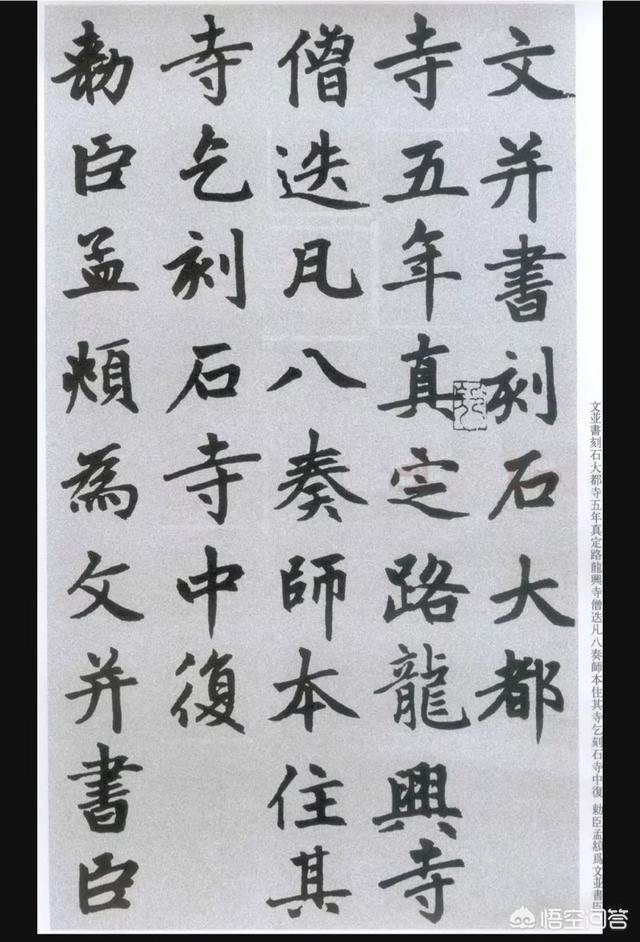 文并書刻石大都
寺五年真定路龍興寺
僧迭凡八奏師本住其
寺乞刻石寺中復
勅臣孟頫為文并書臣
文並書刻石大都寺五年真定路龍興寺僧迭凡八奏師本住其寺乞刻石寺中復 勅臣孟頫爲文並書臣
悟空问答